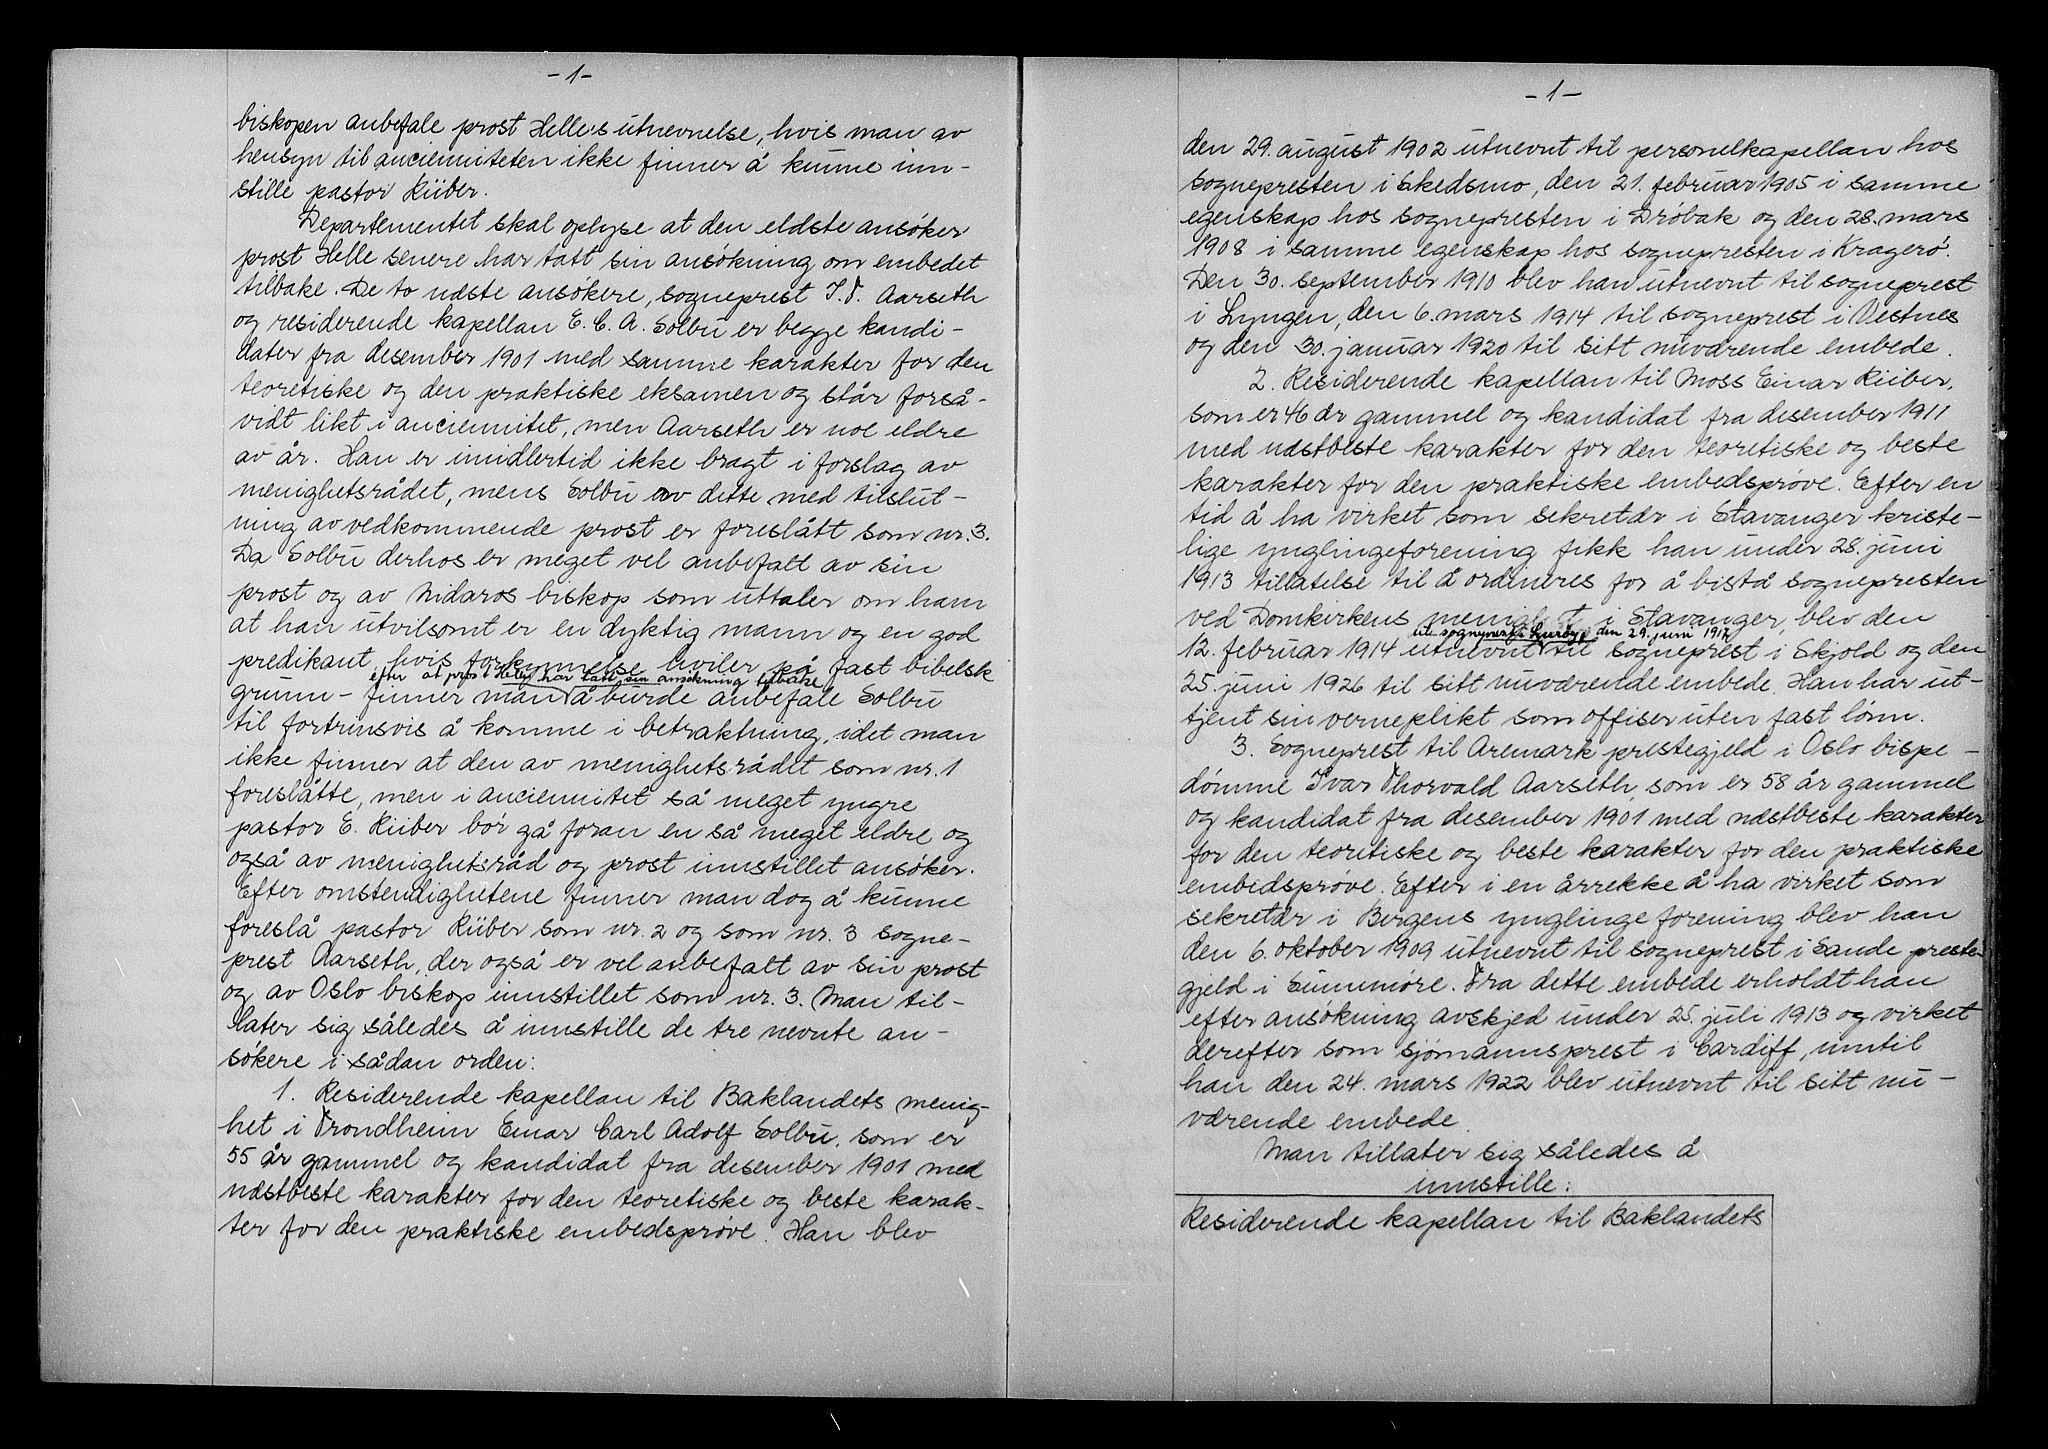 -1-
biskopen anbefale prost Helles utnevnelse, hvis man av
hensyn til ancienniteten ikke finner å kunne inn-
stille pastor Riiber.
Departementet skal oplyse at den eldste ansøker
prost Helle senere har tatt sin ansøkning om embedet
tilbake. De to næste ansøkere, sogneprest I. T. Aarseth
og residerende kapellan E. C. A. Solbu er begge kandi-
dater fra desember 1901 med samme karakter for den
teoretiske og den praktiske eksamen og står forså-
vidt likt i anciennitet, men Aarseth er noe eldre
av år. Han er imidlertid ikke bragt i forslag av
menighetsrådet, mens Solbu av dette med tilslut-
ning av vedkommende prost er foreslått som nr. 3.
Da Solbu derhos er meget vel anbefalt av sin
prost og av Nidaros biskop som uttaler om ham
at han utvilsomt er en dyktig mann og en god
predikant, hvis forkynnelse hviler på fast bibelsk
efter at prost Helle har tatt sin ansøkning tilbake
grunn - finner man å burde anbefale Solbu
til fortrinsvis å komme i betraktning, idet man
ikke finner at den av menighetsrådet som nr. 1
foreslåtte, men i anciennitet så meget yngre
pastor E. Riiber bør gå foran en så meget eldre og
også av menighetsråd og prost innstillet ansøker.
Efter omstendighetene finner man dog å kunne
foreslå pastor Riiber som nr. 2 og som nr. 3 sogne-
prest Aarseth, der også er vel anbefalt av sin prost
og av Oslo biskop innstillet som nr. 3. Man til-
later sig således å innstille de tre nevnte an-
søkere i sådan orden:
1. Residerende kapellan til Baklandets menig-
het i Trondheim Einar Carl Adolf Solbu, som er
55 år gammel og kandidat fra desember 1901 med
næstbeste karakter for den teoretiske og beste karak-
ter for den praktiske embedsprøve. Han blev
-1-
den 29. august 1902 utnevnt til personelkapellan hos
sognepresten i Skedsmo, den 21. februar 1905 i samme
egenskap hos sognepresten i Drøbak og den 28. mars
1908 i samme egenskap hos sognepresten i Kragerø.
Den 30. september 1910 blev han utnevnt til sogneprest
i Lyngen, den 6. mars 1914 til sogneprest i Vestnes
og den 30. januar 1920 til sitt nuværende embede.
2. Residerende kapellan til Moss Einar Riiber,
som er 46 år gammel og kandidat fra desember 1911
med næstbeste karakter for den teoretiske og beste
karakter for den praktiske embedsprøve. Efter en
tid å ha virket som sekretær i Stavanger kriste-
lige ynglingeforening fikk han under 28. juni
1913 tillatelse til å ordineres for å bistå sognepresten
ved Domkirkens menighet i Stavanger, blev den
til sogneprest i Lurøy, den 29. juni 1917
12. februar 1914 utnevnt til sogneprest i Skjold og den
25. juni 1926 til sitt nuværende embede. Han har ut-
tjent sin verneplikt som offiser uten fast lønn.
3. Sogneprest til Aremark prestegjeld i Oslo bispe-
dømme Ivar Thorvald Aarseth, som er 58 år gammel
og kandidat fra desember 1901 med næstbeste karakter
for den teoretiske og beste karakter for den praktiske
embedsprøve. Efter i en årrekke å ha virket som
sekretær i Bergens ynglingeforening blev han
den 6. oktober 1909 utnevnt til sogneprest i Sande preste-
gjeld i Sunnmøre. Fra dette embede erholdt han
efter ansøkning avskjed under 25. juli 1913 og virket
derefter som sjømannsprest i Cardiff, inntil
han den 24. mars 1922 blev utnevnt til sitt nu-
værende embede.
Man tillater sig således å
innstille:
Residerende kapellan til Baklandets